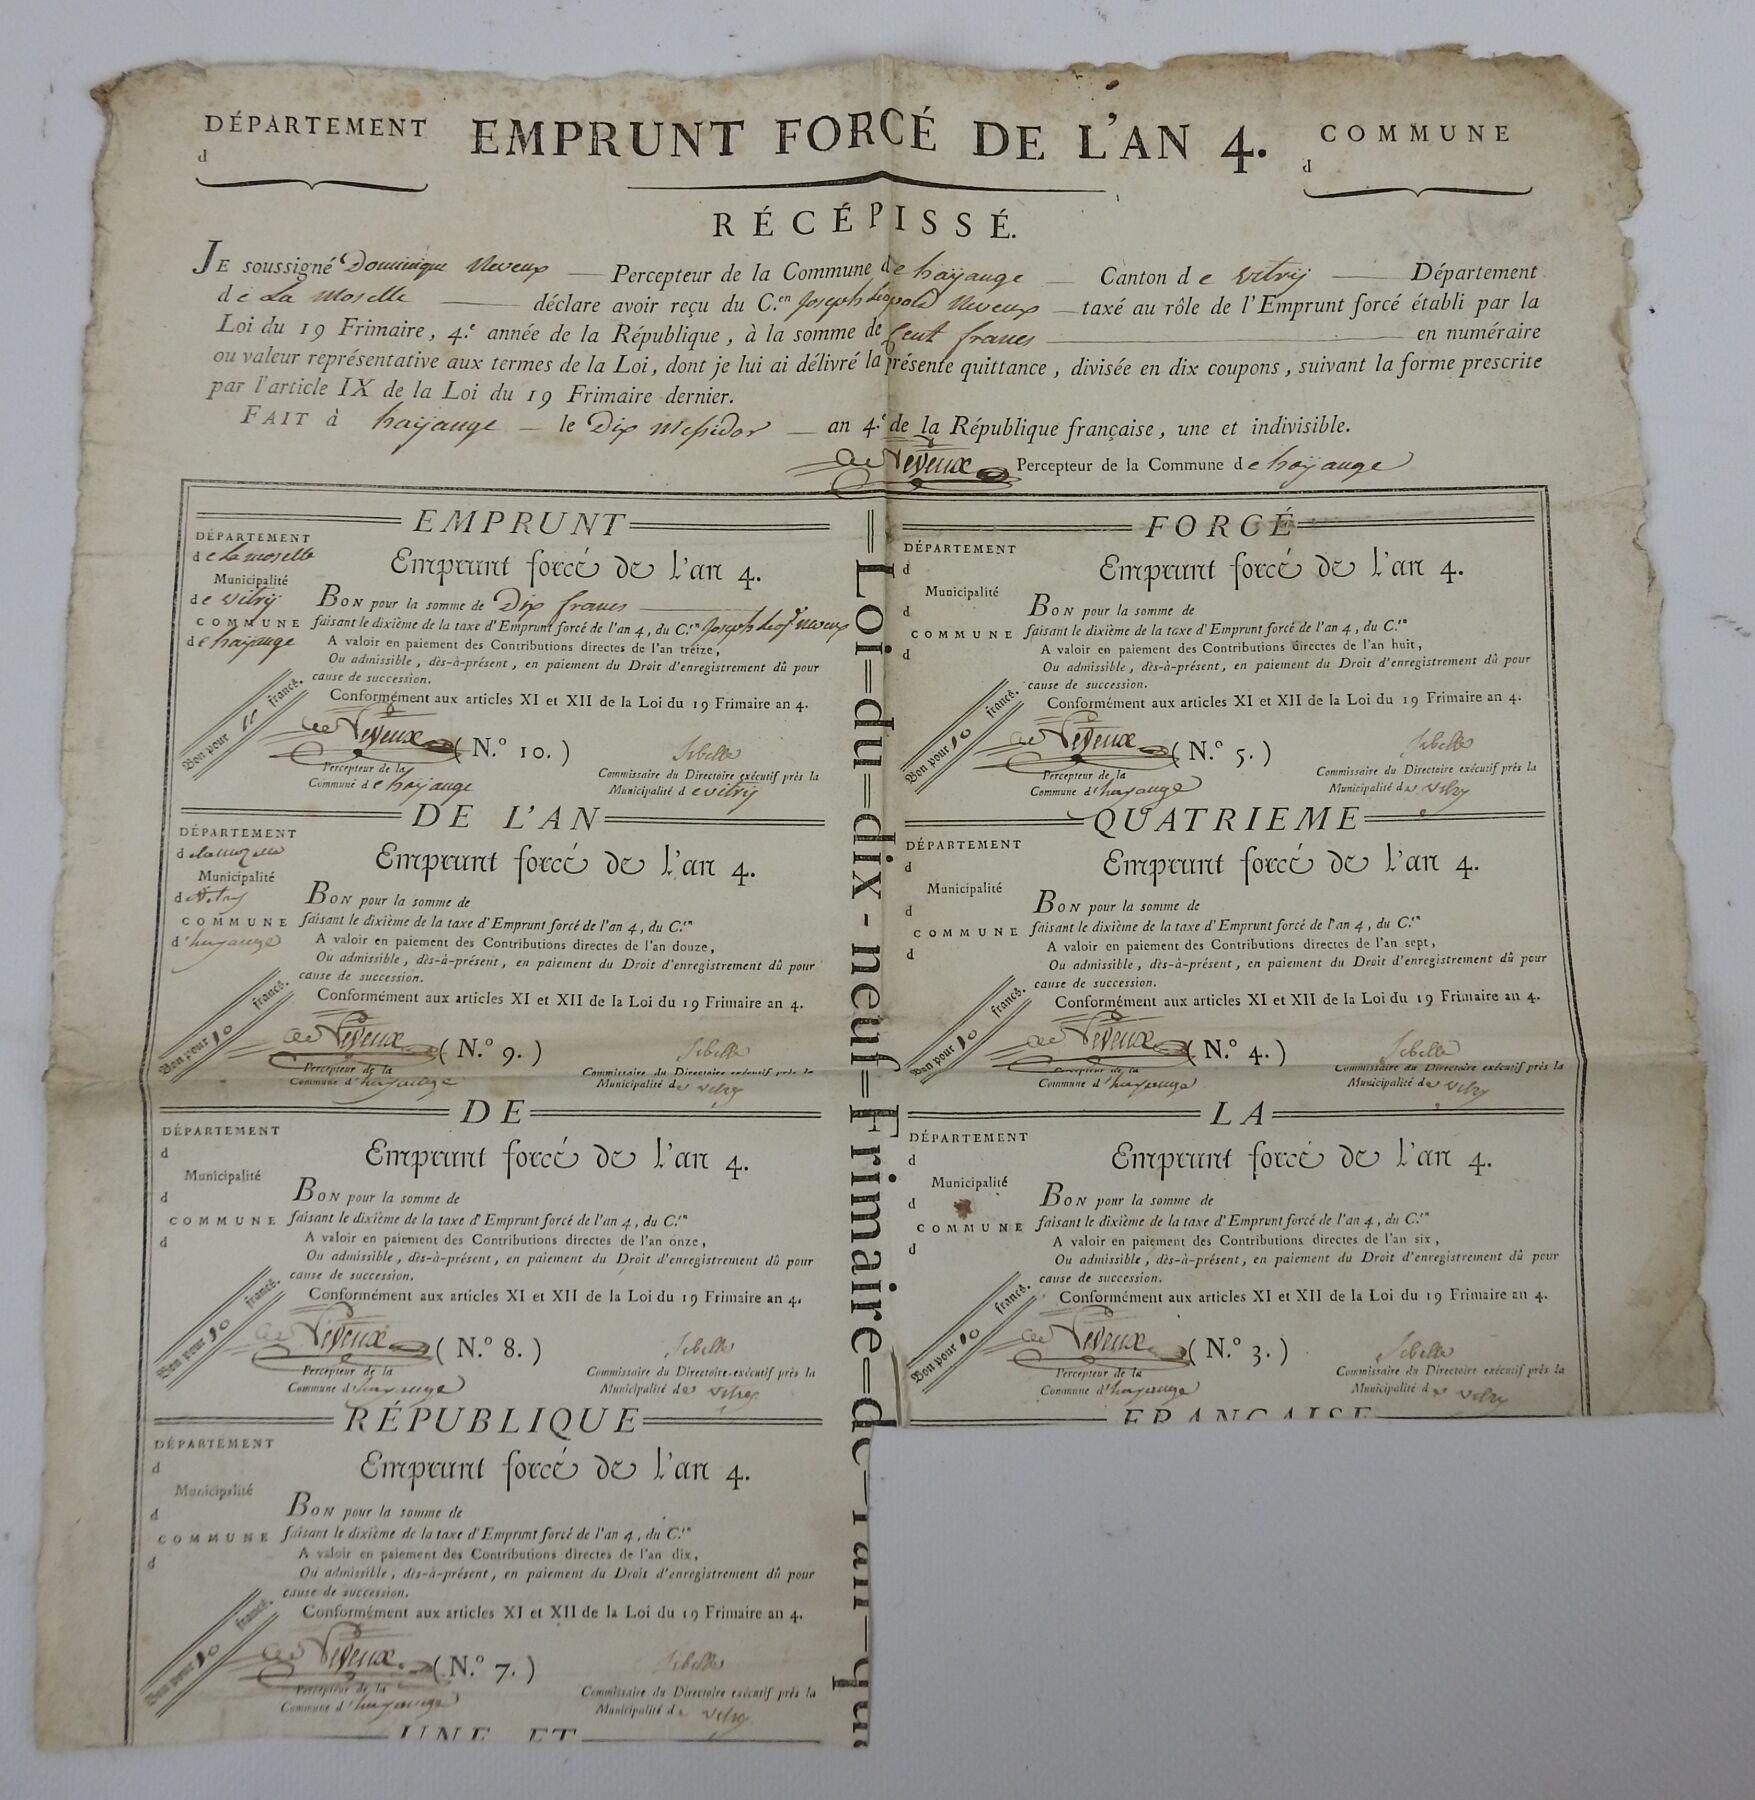 DÉPARTEMENT
d
EMPRUNT FORCÉ DE L'AN 4.
COMMUNE
d
RÉCÉPISSÉ.
JE soussigné Dominique Neveux Percepteur de la Commune de hayange Canton de Vitry Département
de La Moselle déclare avoir reçu du C.en Joseph Leopold Neveux taxé au rôle de l'Emprunt forcé établi par la
Loi du 19 Frimaire, 4.e année de la République, à la somme de Cent francs en numéraire
ou valeur représentative aux termes de la Loi, dont je lui ai délivré la présente quittance, divisée en dix coupons, suivant la forme prescrite
par l'article IX de la Loi du 19 Frimaire dernier.
FAIT à hayange le Dix Messidor an 4.e de la République française, une et indivisible.
Neveux Percepteur de la Commune de hayange
EMPRUNT
DÉPARTEMENT
de La moselle
Municipalité
de Vitry
COMMUNE
de hayange
Emprunt forcé de l'an 4.
BON pour la somme de Dix francs
faisant le dixième de la taxe d'Emprunt forcé de l'an 4, du C.en Joseph Leop.d Neveux
A valoir en paiement des Contributions directes de l'an treize,
Ou admissible, dès-à-présent, en paiement du Droit d'enregistrement dû pour
cause de succession.
Conformément aux articles XI et XII de la Loi du 19 Frimaire an 4.
Bon pour 10 francs.
Neveux (N.o 10.)
Percepteur de la
Commune de hayange
Sibille
Commissaire du Directoire exécutif près la
Municipalité de Vitry
DE L'AN
DÉPARTEMENT
de la moselle
Municipalité
de Vitry
COMMUNE
d'hayange
Emprunt forcé de l'an 4.
BON pour la somme de
faisant le dixième de la taxe d'Emprunt forcé de l'an 4, du C.en
A valoir en paiement des Contributions directes de l'an douze,
Ou admissible, dès-à-présent, en paiement du Droit d'enregistrement dû pour
cause de succession.
Conformément aux articles XI et XII de la Loi du 19 Frimaire an 4.
Bon pour 10 francs.
Neveux (N.o 9.)
Percepteur de la
Commune d'hayange
Sibille
Commissaire du Directoire exécutif près la
Municipalité de Vitry
DE
DÉPARTEMENT
d
Municipalité
d
COMMUNE
d
Emprunt forcé de l'an 4.
BON pour la somme de
faisant le dixième de la taxe d'Emprunt forcé de l'an 4, du C.en
A valoir en paiement des Contributions directes de l'an onze,
Ou admissible, dès-à-présent, en paiement du Droit d'enregistrement dû pour
cause de succession.
Conformément aux articles XI et XII de la Loi du 19 Frimaire an 4.
Bon pour 10 francs.
Neveux (N.o 8.)
Percepteur de la
Commune d'hayange
Sibille
Commissaire du Directoire exécutif près la
Municipalité de Vitry
RÉPUBLIQUE
DÉPARTEMENT
d
Municipalité
d
COMMUNE
d
Emprunt forcé de l'an 4.
BON pour la somme de
faisant le dixième de la taxe d'Emprunt forcé de l'an 4, du C.en
A valoir en paiement des Contributions directes de l'an dix,
Ou admissible, dès-à-présent, en paiement du Droit d'enregistrement dû pour
cause de succession.
Conformément aux articles XI et XII de la Loi du 19 Frimaire an 4.
Bon pour 10 francs.
Neveux (N.o 7.)
Percepteur de la
Commune d'hayange
Sibille
Commissaire du Directoire exécutif près la
Municipalité de Vitry
UNE ET
Loi=du=dix-neuf=Frimaire=de=l'an=qu
FORCÉ
DÉPARTEMENT
d
Municipalité
d
COMMUNE
d
Emprunt forcé de l'an 4.
BON pour la somme de
faisant le dixième de la taxe d'Emprunt forcé de l'an 4, du C.en
A valoir en paiement des Contributions directes de l'an huit,
Ou admissible, dès-à-présent, en paiement du Droit d'enregistrement dû pour
cause de succession.
Conformément aux articles XI et XII de la Loi du 19 Frimaire an 4.
Bon pour 10 francs.
Neveux (N.o 5.)
Percepteur de la
Commune d'hayange
Sibille
Commissaire du Directoire exécutif près la
Municipalité de Vitry
QUATRIEME
DÉPARTEMENT
d
Municipalité
d
COMMUNE
d
Emprunt forcé de l'an 4.
BON pour la somme de
faisant le dixième de la taxe d'Emprunt forcé de l'an 4, du C.en
A valoir en paiement des Contributions directes de l'an sept,
Ou admissible, dès-à-présent, en paiement du Droit d'enregistrement dû pour
cause de succession.
Conformément aux articles XI et XII de la Loi du 19 Frimaire an 4.
Bon pour 10 francs.
Neveux (N.o 4.)
Percepteur de la
Commune d'hayange
Sibille
Commissaire du Directoire exécutif près la
Municipalité de Vitry
LA
DÉPARTEMENT
d
Municipalité
d
COMMUNE
d
Emprunt forcé de l'an 4.
BON pour la somme de
faisant le dixième de la taxe d'Emprunt forcé de l'an 4, du C.en
A valoir en paiement des Contributions directes de l'an six,
Ou admissible, dès-à-présent, en paiement du Droit d'enregistrement dû pour
cause de succession.
Conformément aux articles XI et XII de la Loi du 19 Frimaire an 4.
Bon pour 10 francs.
Neveux (N.o 3.)
Percepteur de la
Commune d'hayange
Sibille
Commissaire du Directoire exécutif près la
Municipalité de Vitry
FRANÇAISE